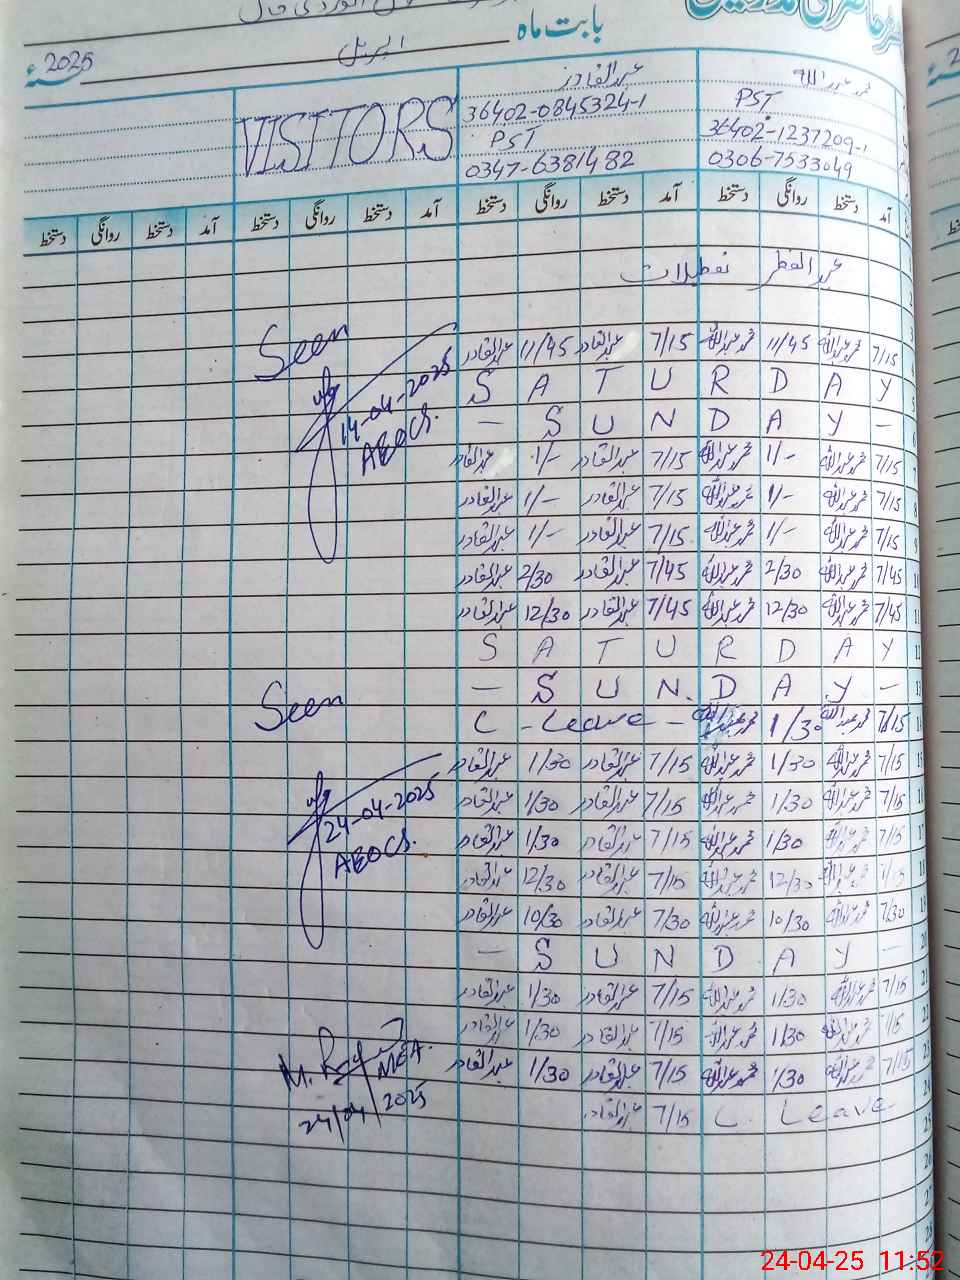 بابت ماہ اپریل 2025ء
محمد عبداللہ
PST
36402-1237209-1
0306-7533049
عبدالقادر
36402-0845324-1
PST
0347-6381482
VISITORS
آمد دستخط روانگی دستخط آمد دستخط روانگی دستخط آمد دستخط روانگی دستخط آمد دستخط روانگی دستخط
عیدالفطر تعطیلات
7/15 محمد عبداللہ 11/45 محمد عبداللہ 7/15 عبدالقادر 11/45 عبدالقادر
S A T U R D A Y
- S U N D A Y -
7/15 محمد عبداللہ 1/- محمد عبداللہ 7/15 عبدالقادر 1/- عبدالقادر
7/15 محمد عبداللہ 1/- محمد عبداللہ 7/15 عبدالقادر 1/- عبدالقادر
7/15 محمد عبداللہ 1/- محمد عبداللہ 7/15 عبدالقادر 1/- عبدالقادر
7/45 محمد عبداللہ 2/30 محمد عبداللہ 7/45 عبدالقادر 2/30 عبدالقادر
7/45 محمد عبداللہ 12/30 محمد عبداللہ 7/45 عبدالقادر 12/30 عبدالقادر
S A T U R D A Y
- S U N D A Y -
7/15 محمد عبداللہ 1/30 محمد عبداللہ
C - Leave -
7/15 محمد عبداللہ 1/30 محمد عبداللہ 7/15 عبدالقادر 1/30 عبدالقادر
7/15 محمد عبداللہ 1/30 محمد عبداللہ 7/15 عبدالقادر 1/30 عبدالقادر
7/15 محمد عبداللہ 1/30 محمد عبداللہ 7/15 عبدالقادر 1/30 عبدالقادر
7/15 محمد عبداللہ 12/30 محمد عبداللہ 7/15 عبدالقادر 12/30 عبدالقادر
7/30 محمد عبداللہ 10/30 محمد عبداللہ 7/30 عبدالقادر 10/30 عبدالقادر
- S U N D A Y -
7/15 محمد عبداللہ 1/30 محمد عبداللہ 7/15 عبدالقادر 1/30 عبدالقادر
7/15 محمد عبداللہ 1/30 محمد عبداللہ 7/15 عبدالقادر 1/30 عبدالقادر
7/15 محمد عبداللہ 1/30 محمد عبداللہ 7/15 عبدالقادر 1/30 عبدالقادر
C. Leave
7/15 عبدالقادر
Seen
14-04-2025
AEOCS.
Seen
24-04-2025
AEOCS.
MEA.
24/04/2025
24-04-25 11:52